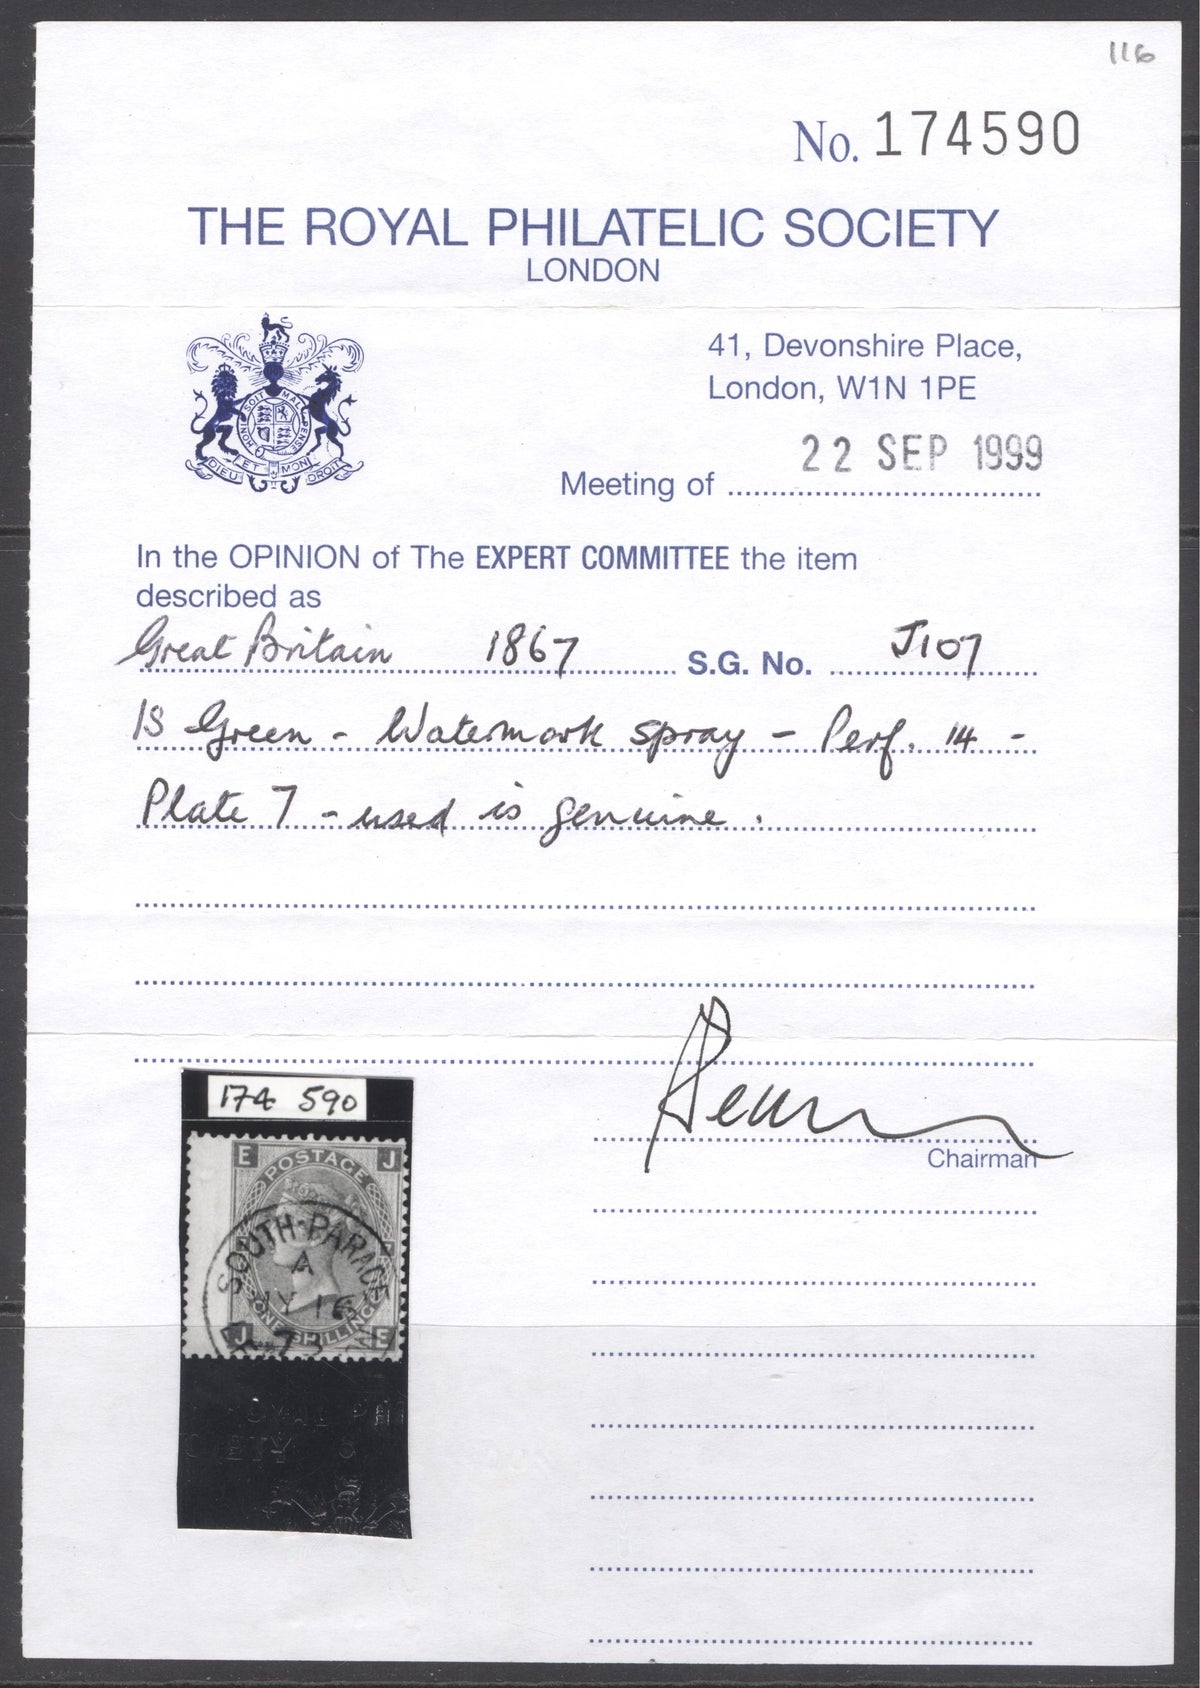 116
No. 174590
THE ROYAL PHILATELIC SOCIETY
LONDON
HONI SOIT MAL PENSE
DIEU ET MON DROIT
41, Devonshire Place,
London, W1N 1PE
22 SEP 1999
Meeting of
In the OPINION of The EXPERT COMMITTEE the item
described as
Great Britain 1867 S.G. No. J107
1S Green - Watermark spray - Perf. 14 -
Plate 7 - used is genuine.
Chairman
174 590
E J
POSTAGE
SOUTH-PARADE
A
MY 16
73
ONE SHILLING
J E
ROYAL PHI